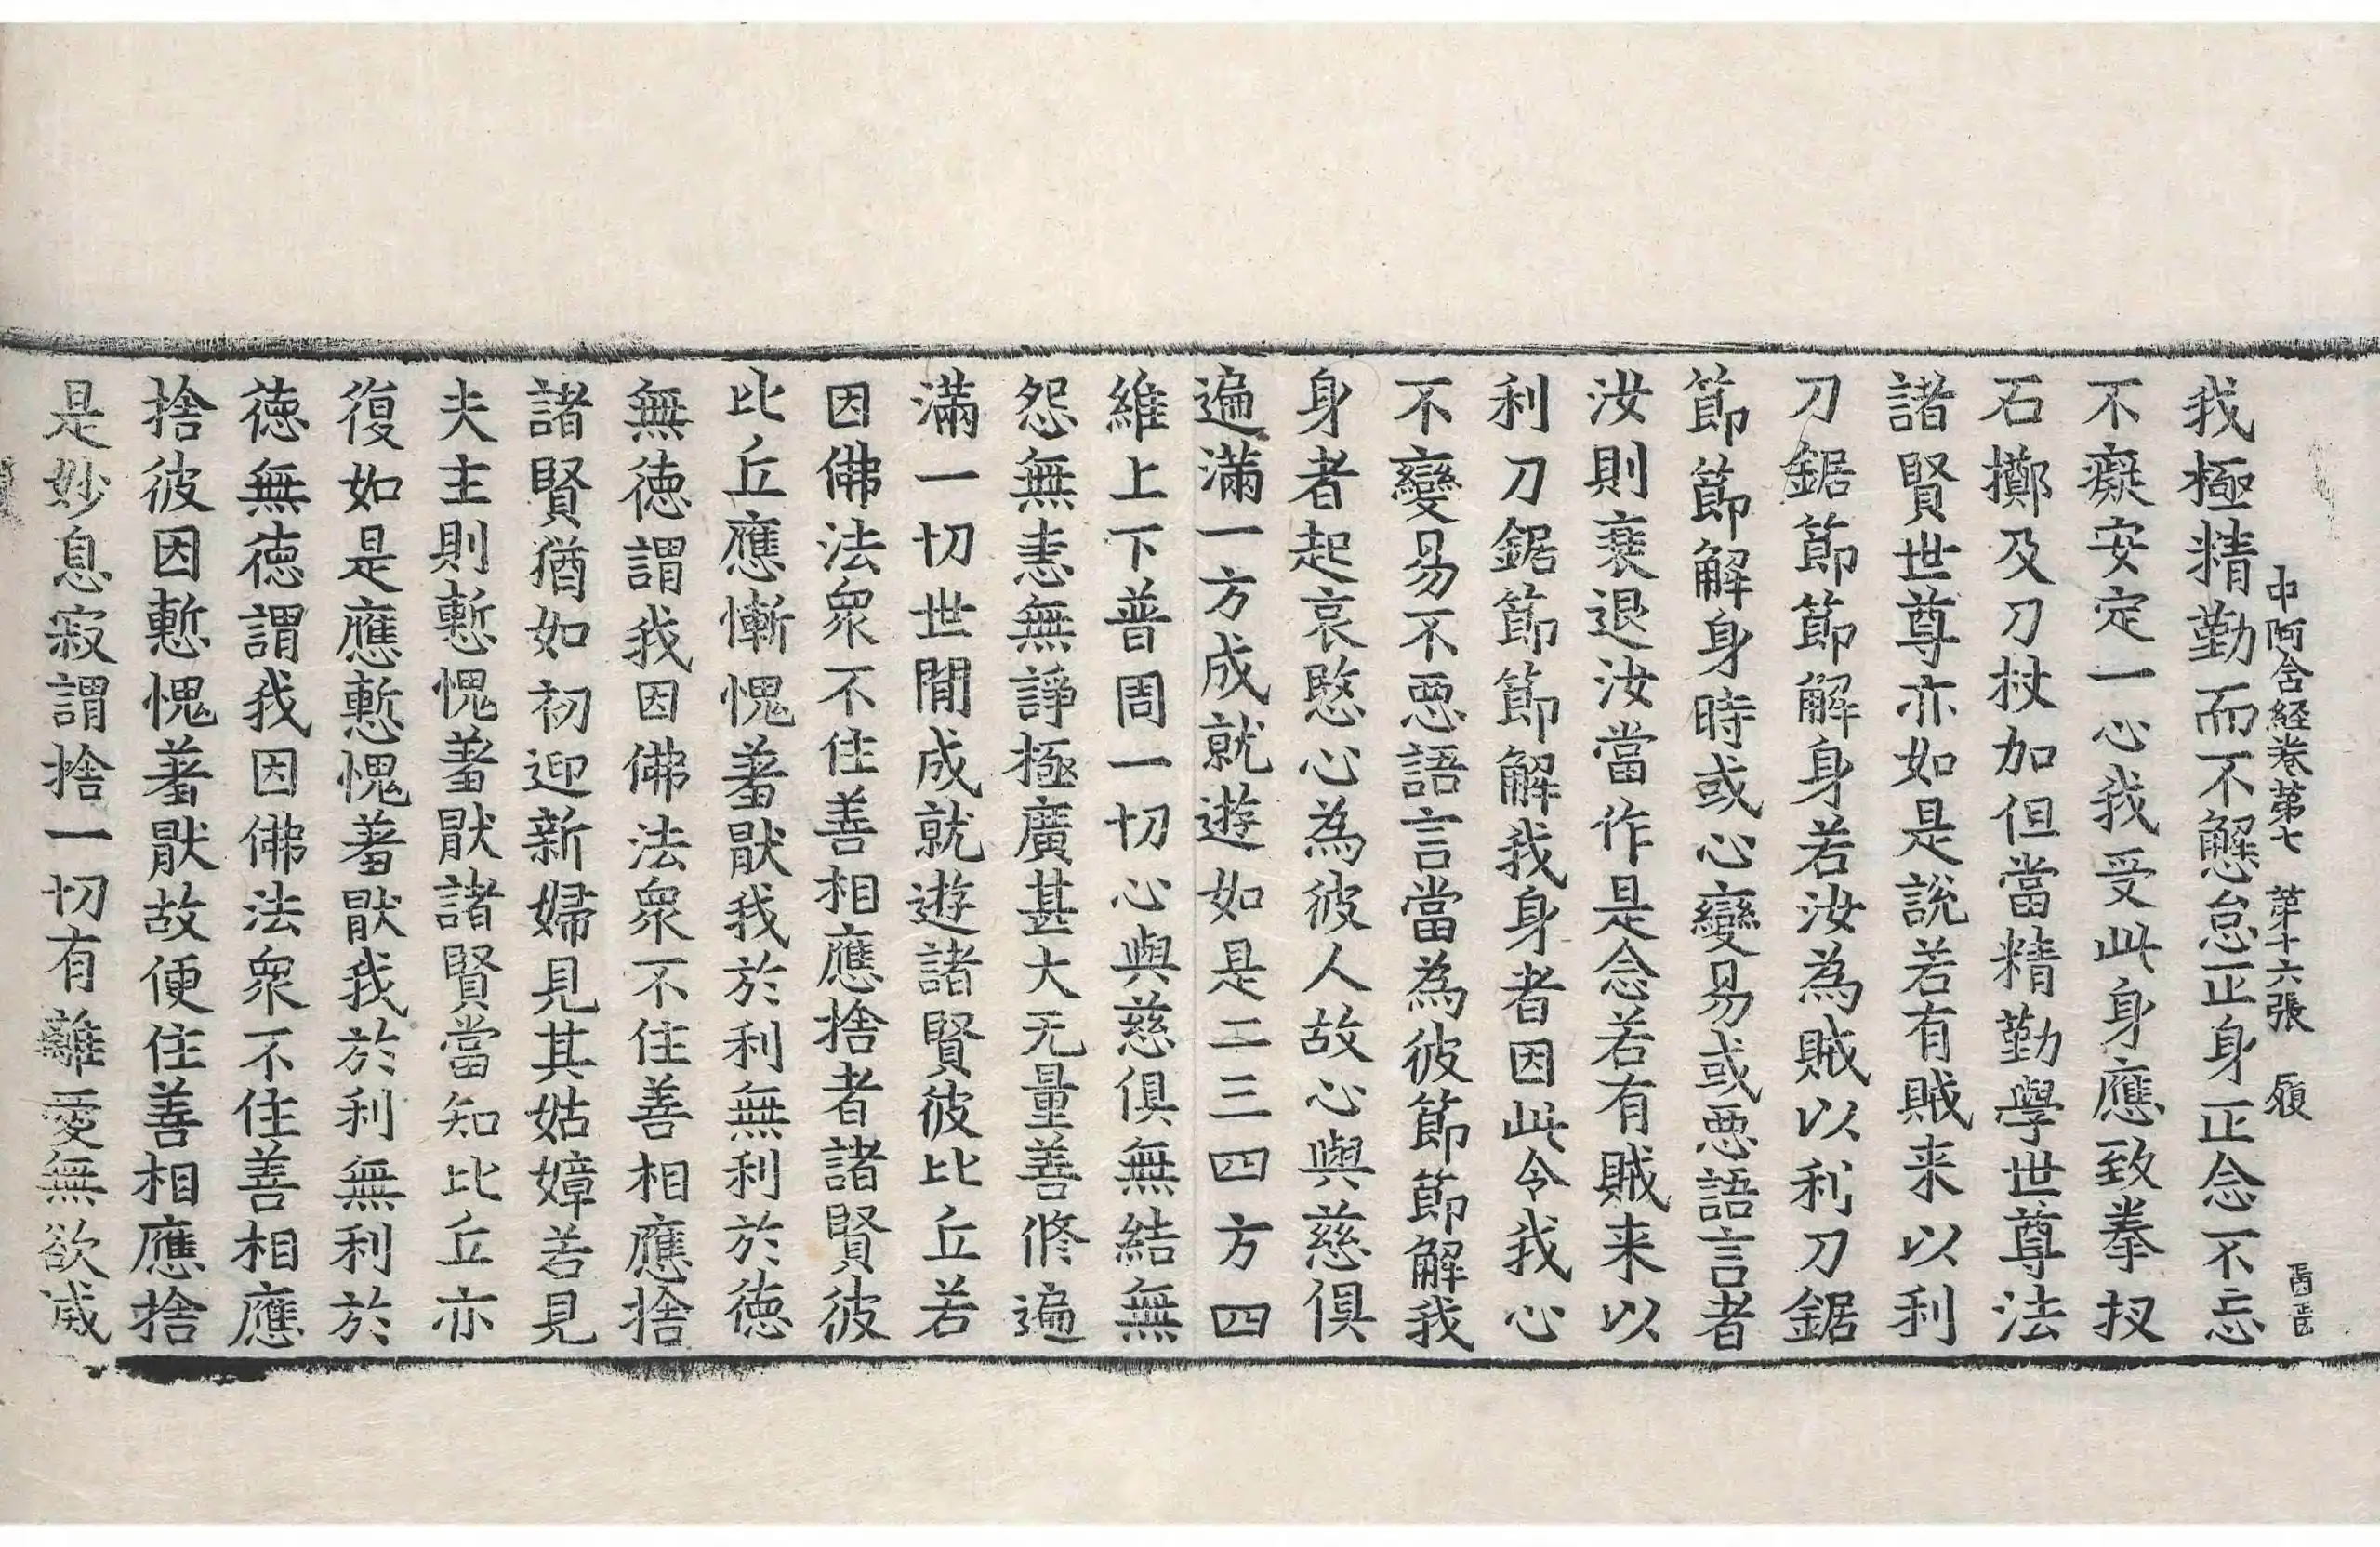 中阿含経卷第七 第十六張 履
我極精勤而不懈怠正身正念不忘
不癡安定一心我受此身應致拳扠
石擲及刀杖加但當精勤學世尊法
諸賢世尊亦如是說若有賊来以利
刀鋸節節解身若汝為賊以利刀鋸
節節解身時或心變易或悪語言者
汝則衰退汝當作是念若有賊来以
利刀鋸節節解我身者因此令我心
不變易不悪語言當為彼節節解我
身者起哀愍心為彼人故心與慈俱
遍滿一方成就遊如是二三四方四
維上下普周一切心與慈俱無結無
怨無恚無諍極廣甚大无量善修遍
滿一切世閒成就遊諸賢彼比丘若
因佛法衆不住善相應捨者諸賢彼
比丘應慚愧羞猒我於利無利於徳
無徳謂我因佛法衆不住善相應捨
諸賢猶如初迎新婦見其姑嫜若見
夫主則慙愧羞猒諸賢當知比丘亦
復如是應慙愧羞猒我於利無利於
徳無徳謂我因佛法衆不住善相應
捨彼因慙愧羞猒故便住善相應捨
是妙息寂謂捨一切有離愛無欲滅